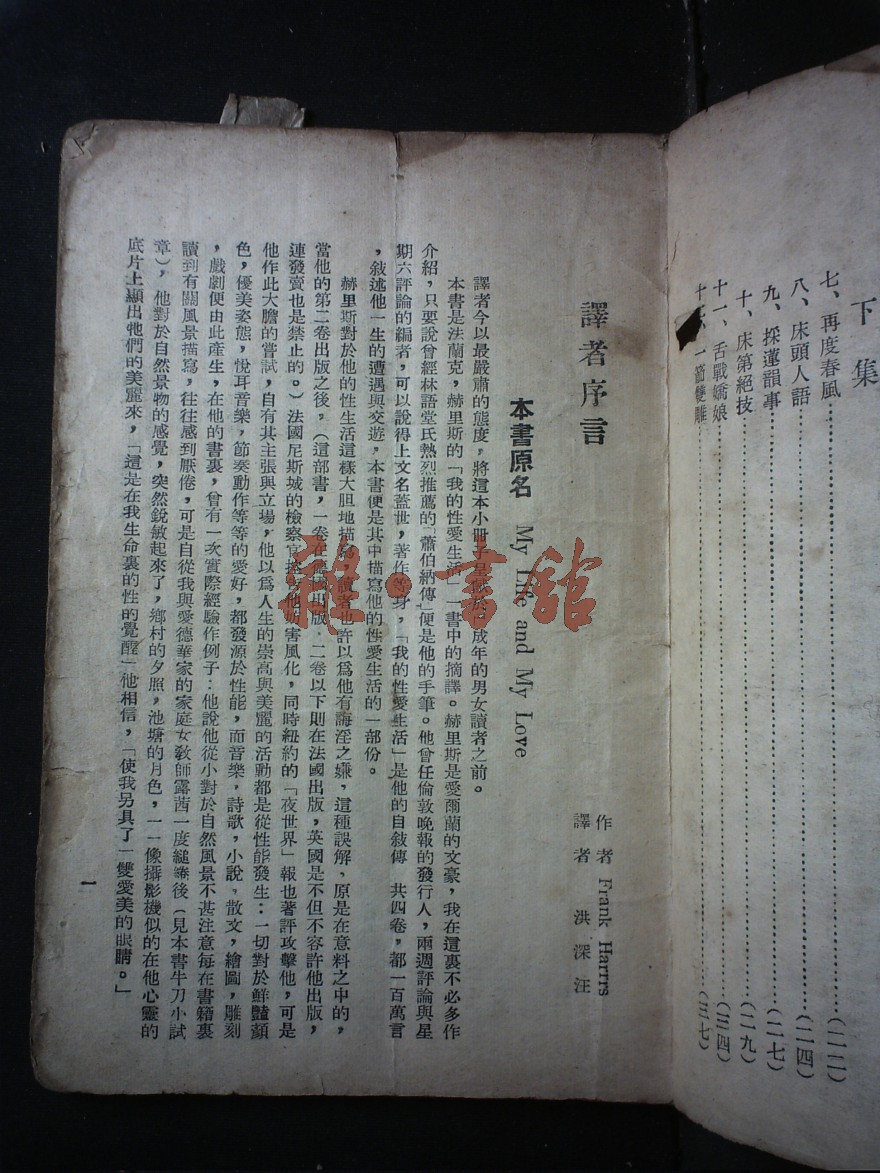 下集
七、再度春風……(二二)
八、床頭人語……(二四)
九、採蓮韻事……(二七)
十、床第絕技……(二九)
十一、舌戰嬌娘……(三四)
一箭雙雕……(三七)
譯者序言
作者 Frank Harrrs
譯者 洪深汪
本書原名 My Life and My Love
譯者今以最嚴肅的態度,將這本小冊子呈獻於已成年的男女讀者之前。
本書是法蘭克,赫里斯的「我的性愛生活」一書中的摘譯。赫里斯是愛爾蘭的文豪,我在這裏不必多作
介紹,只要說曾經林語堂氏熱烈推薦的「蕭伯納傳」便是他的手筆。他曾任倫敦晚報的發行人,兩週評論與星
期六評論的編者,可以說得上文名蓋世,著作等身,「我的性愛生活」是他的自敘傳 共四卷,都一百萬言
,敘述他一生的遭遇與交遊,本書便是其中描寫他的性愛生活的一部份。
赫里斯對於他的性生活這樣大胆地描寫,讀者也許以爲他有誨淫之嫌,這種誤解、原是在意料之中的,
當他的第二卷出版之後,(這部書,一卷在國出版.二卷以下則在法國出版,英國是不但不容許他出版,
連發賣也是禁止的。)法國尼斯城的檢察官他妨害風化,同時紐約的「夜世界」報也著評攻擊他,可是
他作此大膽的嘗試,自有其主張與立場,他以爲人生的崇高與美麗的活動都是從性能發生:一切對於鮮豔顏
色,優美姿態,悅耳音樂,節奏動作等等的愛好,都發源於性能,而音樂,詩歌,小說,散文,繪圖,雕刻
,戲劇便由此產生,在他的書裏,曾有一次實際經驗作例子:他說他從小對於自然風景不甚注意每在書籍裏
讀到有關風景描寫,往往感到厭倦,可是自從我與愛德華家的家庭女教師露茜一度繾綣後(見本書牛刀小試
章),他對於自然景物的感覺,突然銳敏起來了,鄉村的夕照,池塘的月色,一一像攝影機似的在他心靈的
底片上顯出牠們的美麗來,「這是在我生命裏的性的覺醒」他相信,「使我另具了一雙愛美的眼睛。」
一
雜·書館